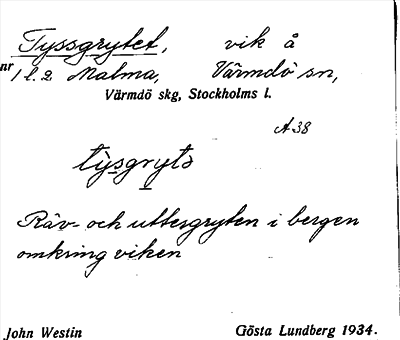 Tyssgrytet, vik å
nr 1 l. 2 Malma, Värmdö sn,
Värmdö skg, Stockholms l.
A 38
tỳsgrytə
Räv- och uttergryten i bergen
omkring viken
John Westin Gösta Lundberg 1934.